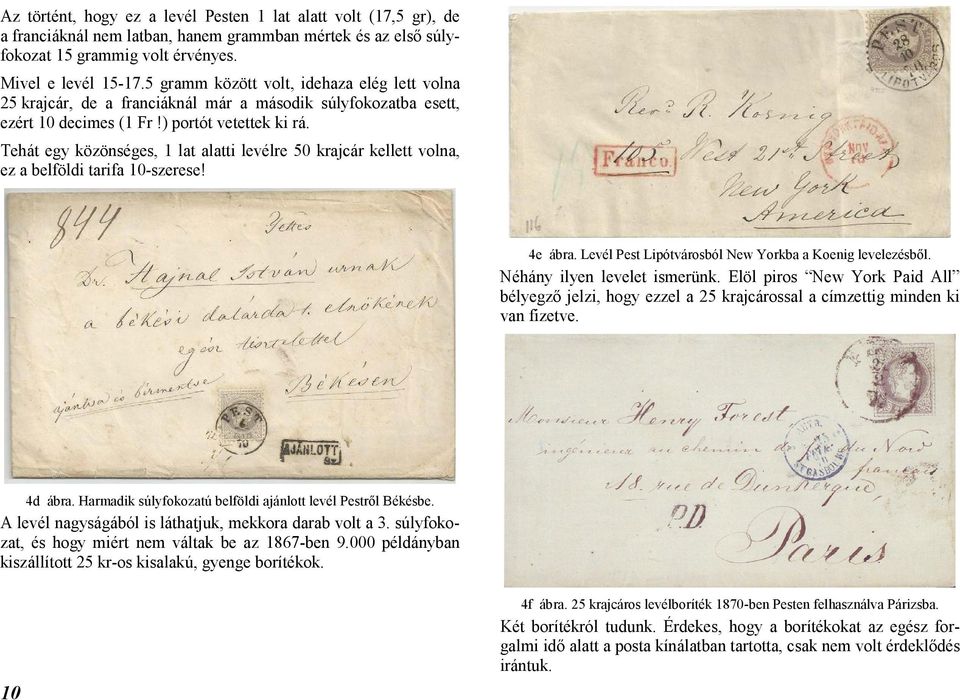 Az történt, hogy ez a levél Pesten 1 lat alatt volt (17,5 gr), de
a franciáknál nem latban, hanem grammban mértek és az első súly-
fokozat 15 grammig volt érvényes.
Mivel e levél 15-17.5 gramm között volt, idehaza elég lett volna
25 krajcár, de a franciáknál már a második súlyfokozatba esett,
ezért 10 decimes (1 Fr !) portót vetettek ki rá.
Tehát egy közönséges, 1 lat alatti levélre 50 krajcár kellett volna,
ez a belföldi tarifa 10-szerese!
844
Tettes
Dr. Hajnal István urnak
a békési dalárda t. elnökének
egész tisztelettel
ajánlva és bérmentve
Békésen
PEST
6
10
AJÁNLOTT
Sz.
4d ábra. Harmadik súlyfokozatú belföldi ajánlott levél Pestről Békésbe.
A levél nagyságából is láthatjuk, mekkora darab volt a 3. súlyfoko-
zat, és hogy miért nem váltak be az 1867-ben 9.000 példányban
kiszállított 25 kr-os kisalakú, gyenge borítékok.
10
PEST
28
10
LIPOTVÁROS
Revd R. Koenig
105. West 21st Street
New York
America
Franco.
NEW YORK PAID ALL
NOV
116
4e ábra. Levél Pest Lipótvárosból New Yorkba a Koenig levelezésből.
Néhány ilyen levelet ismerünk. Elöl piros “New York Paid All”
bélyegző jelzi, hogy ezzel a 25 krajcárossal a címzettig minden ki
van fizetve.
Monsieur Henry Forest
ingénieur au chemin de du Nord
français
18. rue de Dunkerque,
Paris
P.D.
STRASBOURG
4f ábra. 25 krajcáros levélboríték 1870-ben Pesten felhasználva Párizsba.
Két borítékról tudunk. Érdekes, hogy a borítékokat az egész for-
galmi idő alatt a posta kínálatban tartotta, csak nem volt érdeklődés
irántuk.